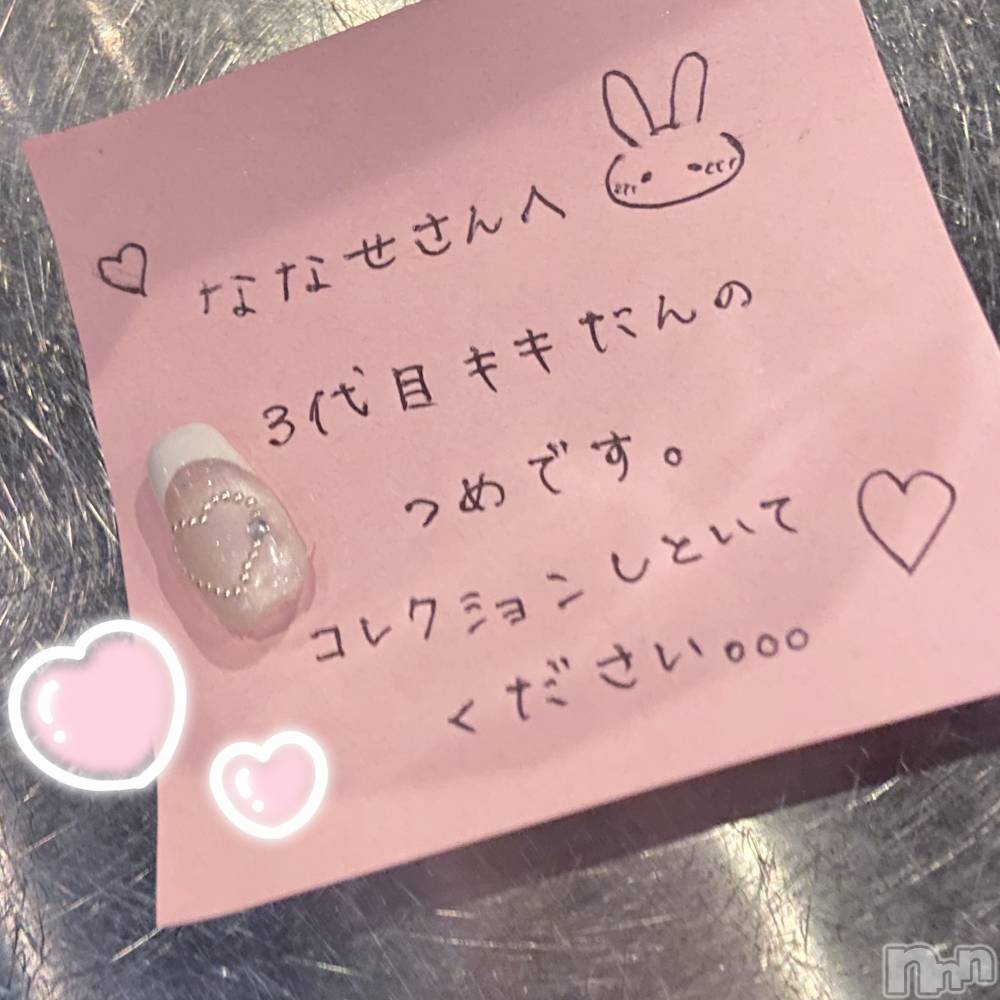 ななせさんへ
3代目キキだんの
つめです。
コレクションしといて
ください。。。
nnn